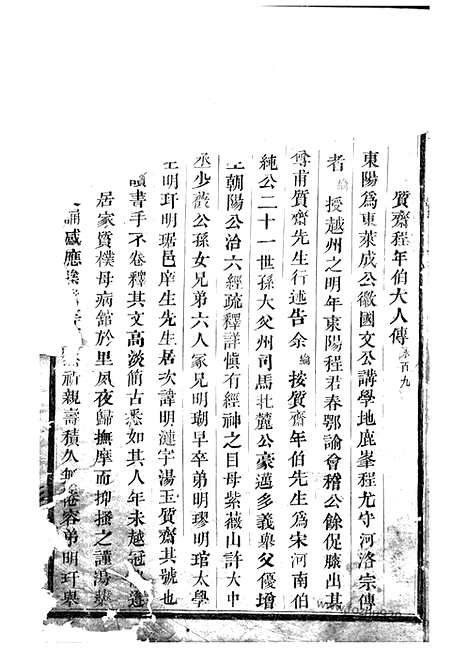 質齋程年伯大人傳 卷百九
東陽爲東萊成公徽國文公講學地鹿峯程尤守河洛宗傳
者編授越州之明年東陽程君春鄂諭會稽公餘促膝出其
尊甫質齋先生行述告余編按質齋年伯先生爲宋河南伯
純公二十一世孫大父州司馬北麓公豪邁多義舉父優增
生朝陽公治六經疏釋詳愼有經神之目母紫薇山許大中
丞少薇公孫女兄弟六人冢兄明瑚早卒弟明璆明琯太學
生明玕明琚邑庠生先生居次諱明漣字湯玉質齋其號也
讀書手不卷釋其文高淡簡古悉如其人年未越冠
居家質樸母病舘於里夙夜歸撫摩而抑搔之謹湯
誦感應 祈親壽積久無倦容弟明玕與